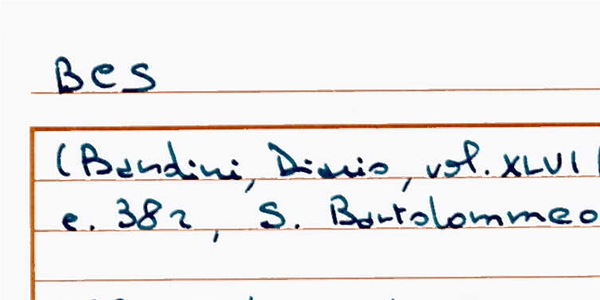 BCS
(Bandini, Diario, vol. XLVI
c. 382, S. Bartolommeo